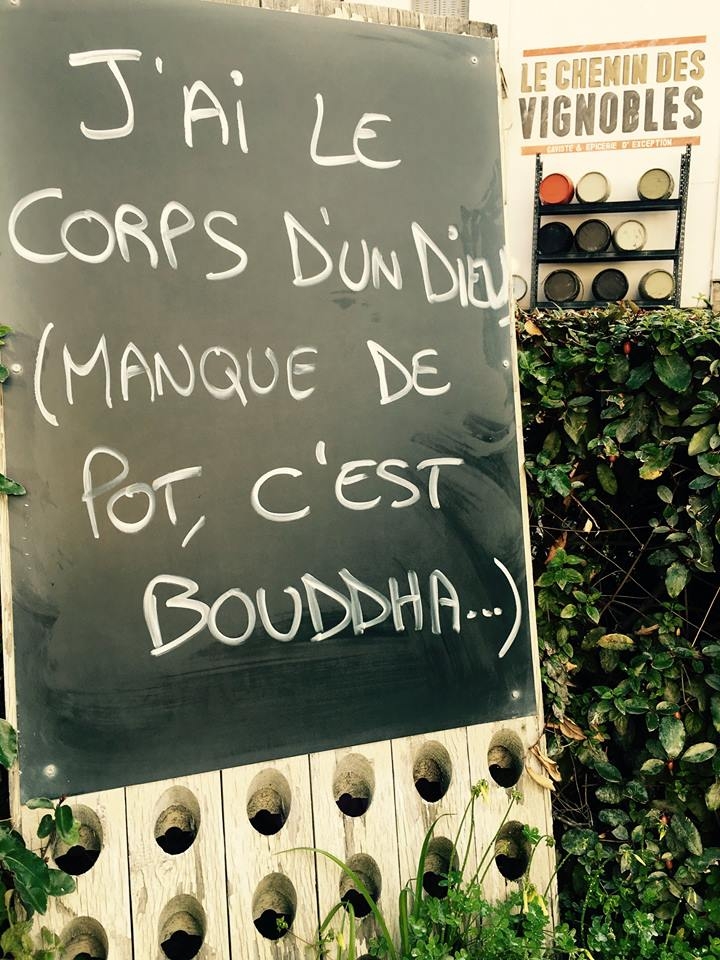 J'AI LE
CORPS D'UN DIEU
(MANQUE DE
POT, C'EST
BOUDDHA...)
LE CHEMIN DES
VIGNOBLES
CAVISTE & EPICERIE D'EXCEPTION